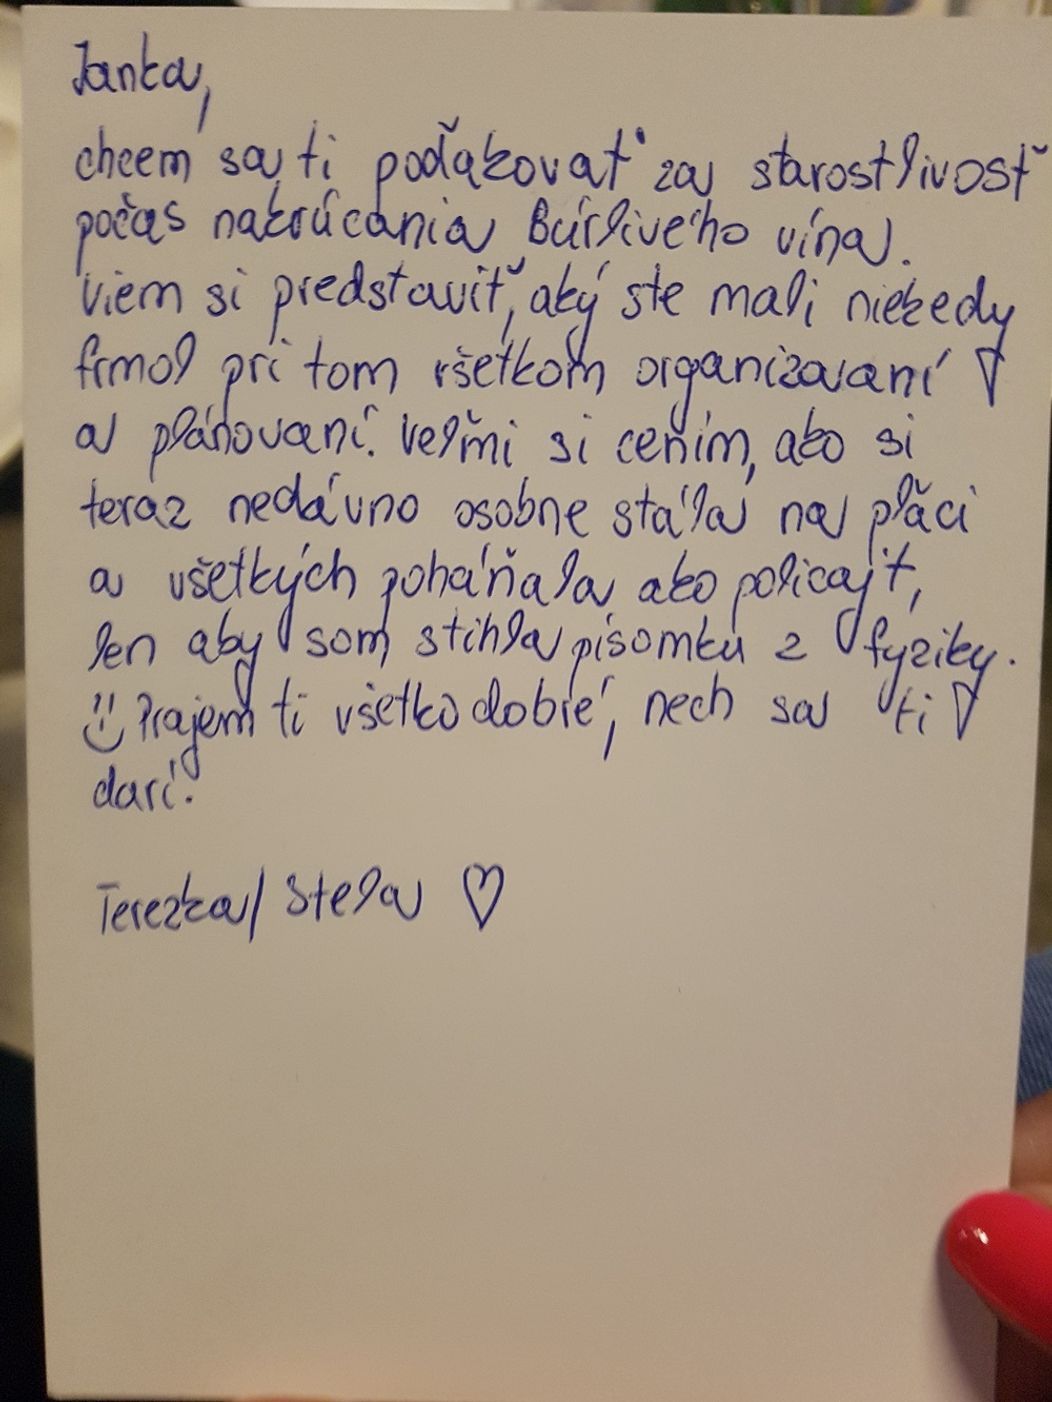 Janka,
chcem sa ti poďakovať za starostlivosť
počas nakrúcania Búrlivého vína.
Viem si predstaviť, aký ste mali niekedy
frmol pri tom všetkom organizovaní
a plánovaní. Veľmi si cením, ako si
teraz nedávno osobne stála na pľáci
a všetkých poháňala ako policajt,
len aby som stihla písomku z fyziky.
Prajem ti všetko dobré, nech sa ti
darí.
Terezka/ Stela ♡